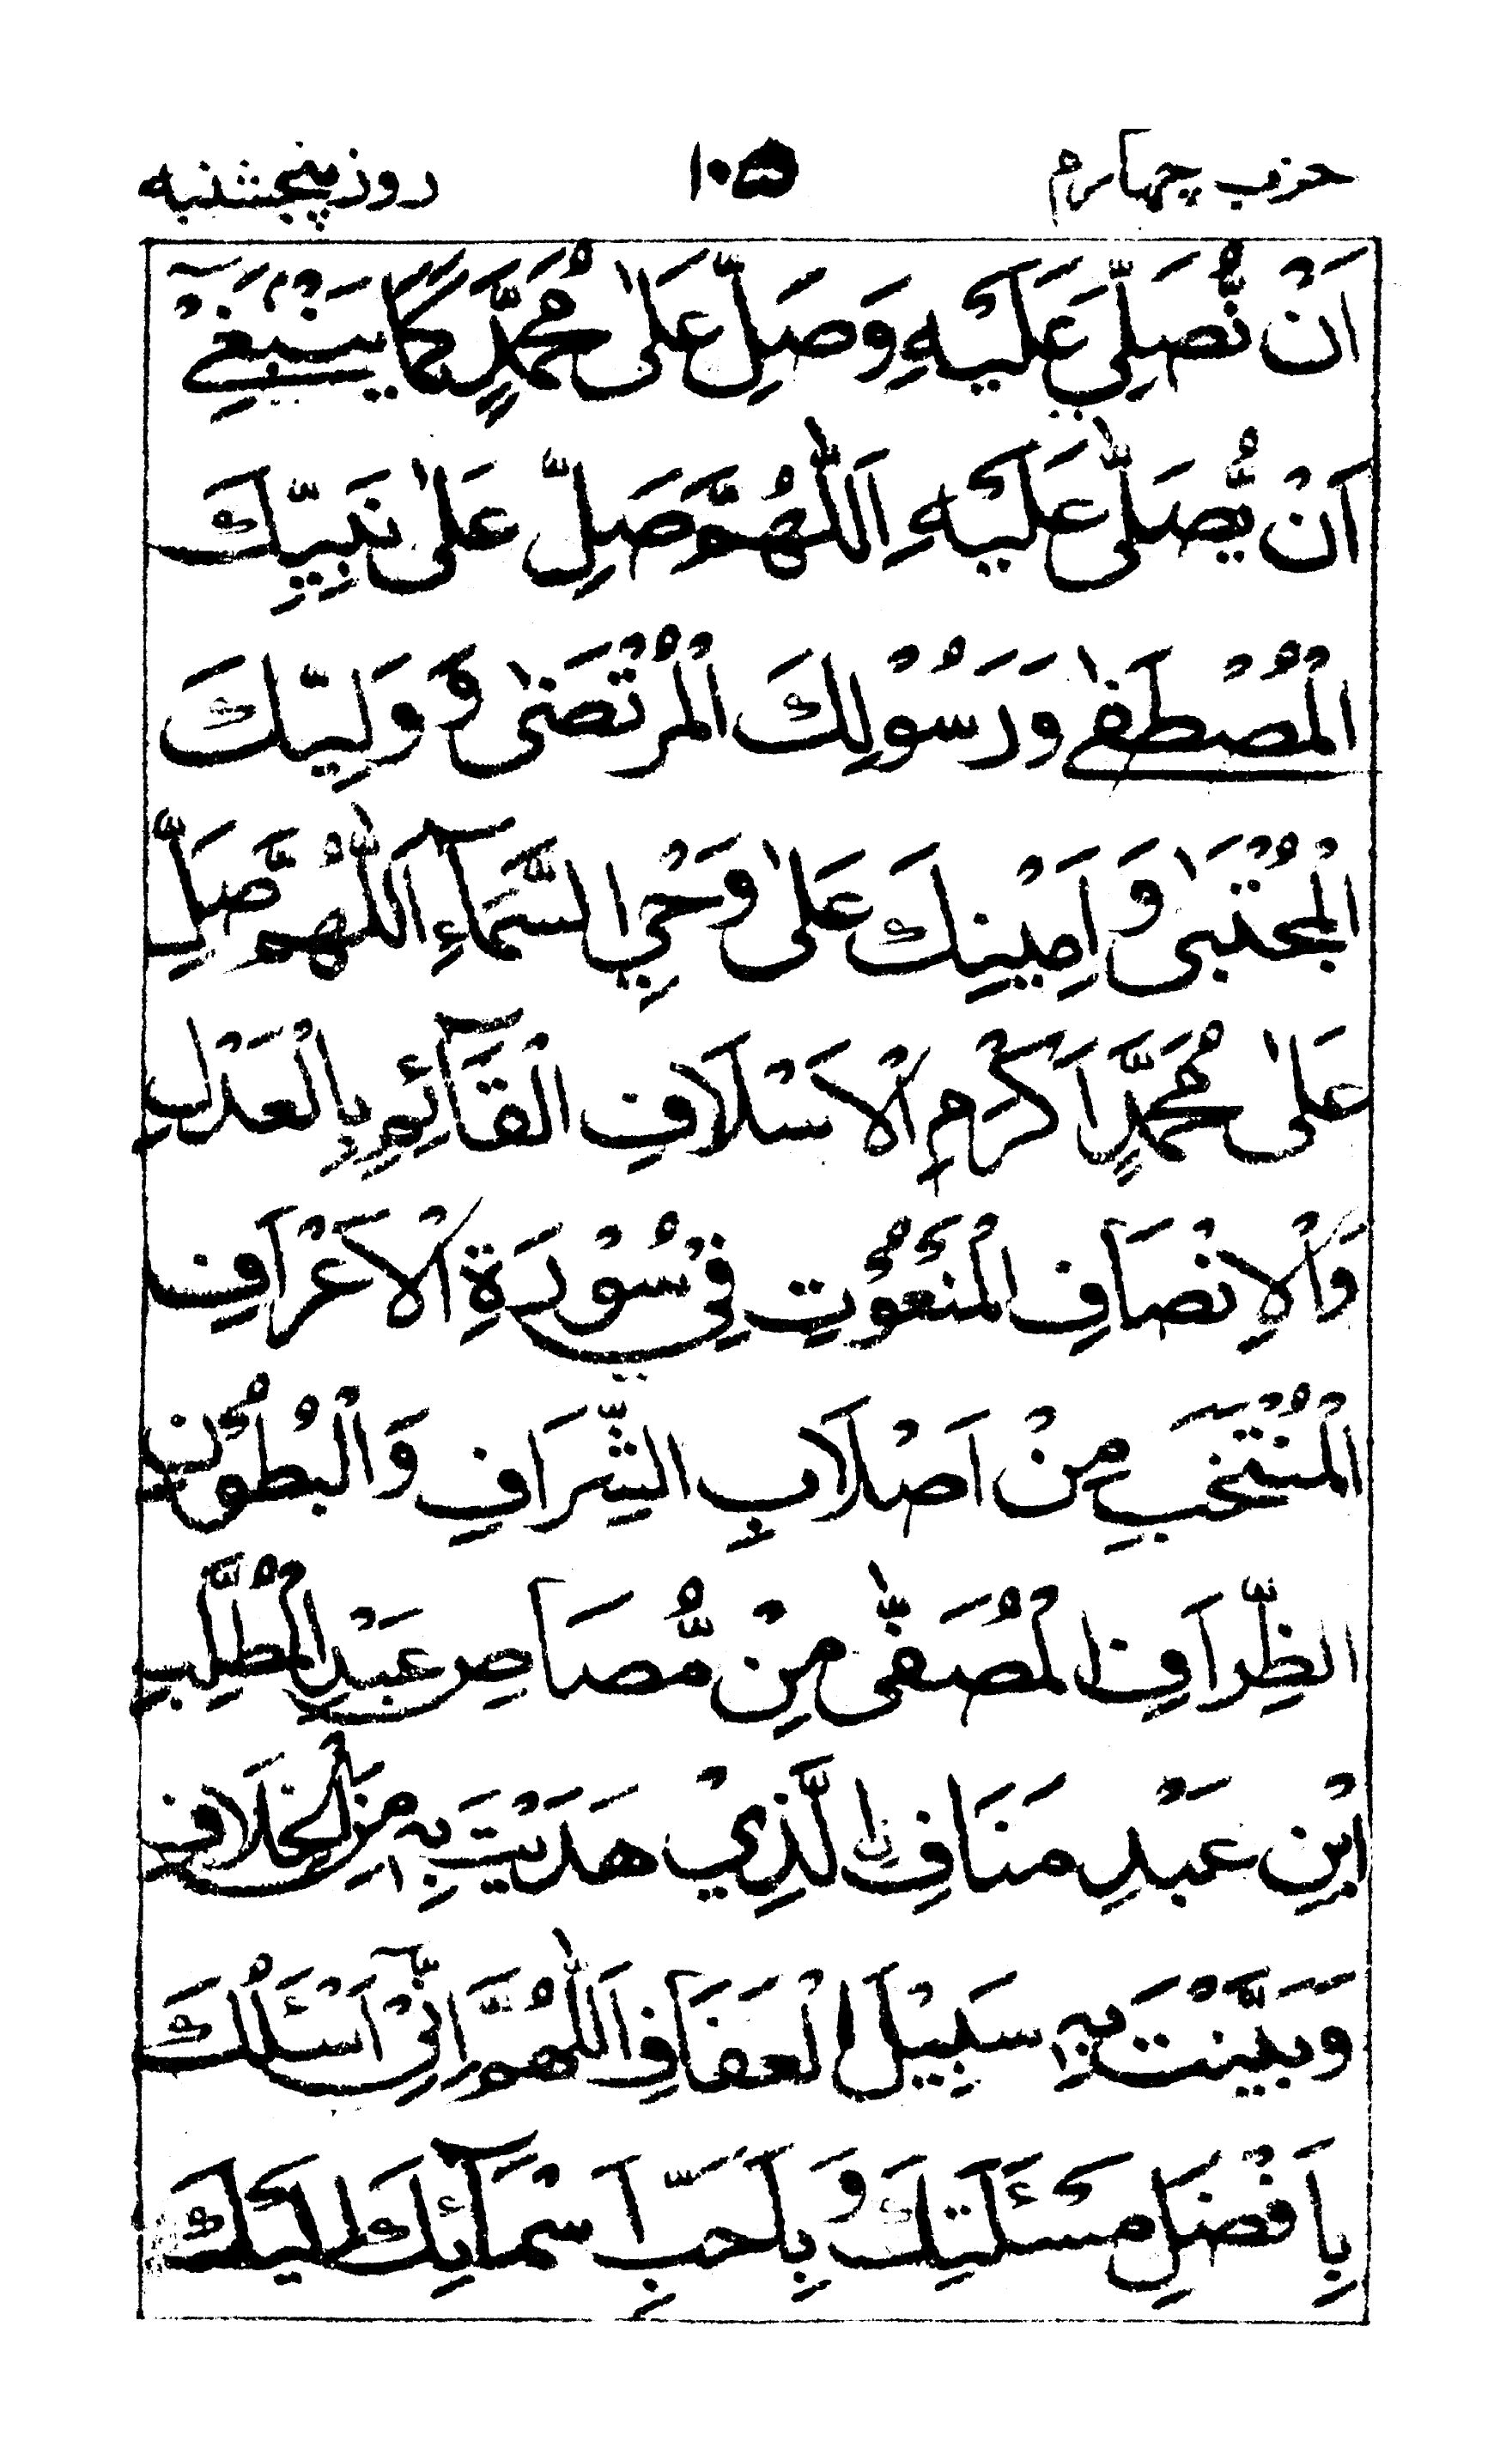 حزب چہارم ۱۰۵ روز پنجشنبه
اَنْ نُّصَلِّيَ عَلَيْهِ وَصَلِّ عَلٰى مُحَمَّدٍ كَمَا يَنْۢبَغِيْٓ
اَنْ يُّصَلّٰى عَلَيْهِ اَللّٰهُمَّ صَلِّ عَلٰى نَبِيِّكَ
الْمُصْطَفٰے وَرَسُوْلِكَ الْمُرْتَضٰى وَوَلِيِّكَ
الْمُجْتَبٰى وَاَمِيْنِكَ عَلٰى وَحْيِ السَّمَآءِ اَللّٰهُمَّ صَلِّ
عَلٰى مُحَمَّدٍ اَكْرَمِ الْاَسْلَافِ الْقَآئِمِ بِالْعَدْلِ
وَالْاِنْصَافِ الْمَنْعُوْتِ فِيْ سُوْرَةِ الْاَعْرَافِ
الْمُنْتَخَبِ مِنْ اَصْلَابِ الشِّرَافِ وَالْبُطُوْنِ
الظِّرَافِ الْمُصَفّٰى مِنْ مُّصَاصِ عَبْدِ الْمُطَّلِبِ
ابْنِ عَبْدِ مَنَافِ ِۨالَّذِيْ هَدَيْتَ بِهٖ مِنَ الْخِلَافِ
وَبَيَّنْتَ بِهٖ سَبِيْلَ الْعَفَافِ اَللّٰهُمَّ اِنِّيْٓ اَسْئَلُكَ
بِاَفْضَلِ مَسْئَلَتِكَ وَبِاَحَبِّ اَسْمَآئِكَ اِلَيْكَ